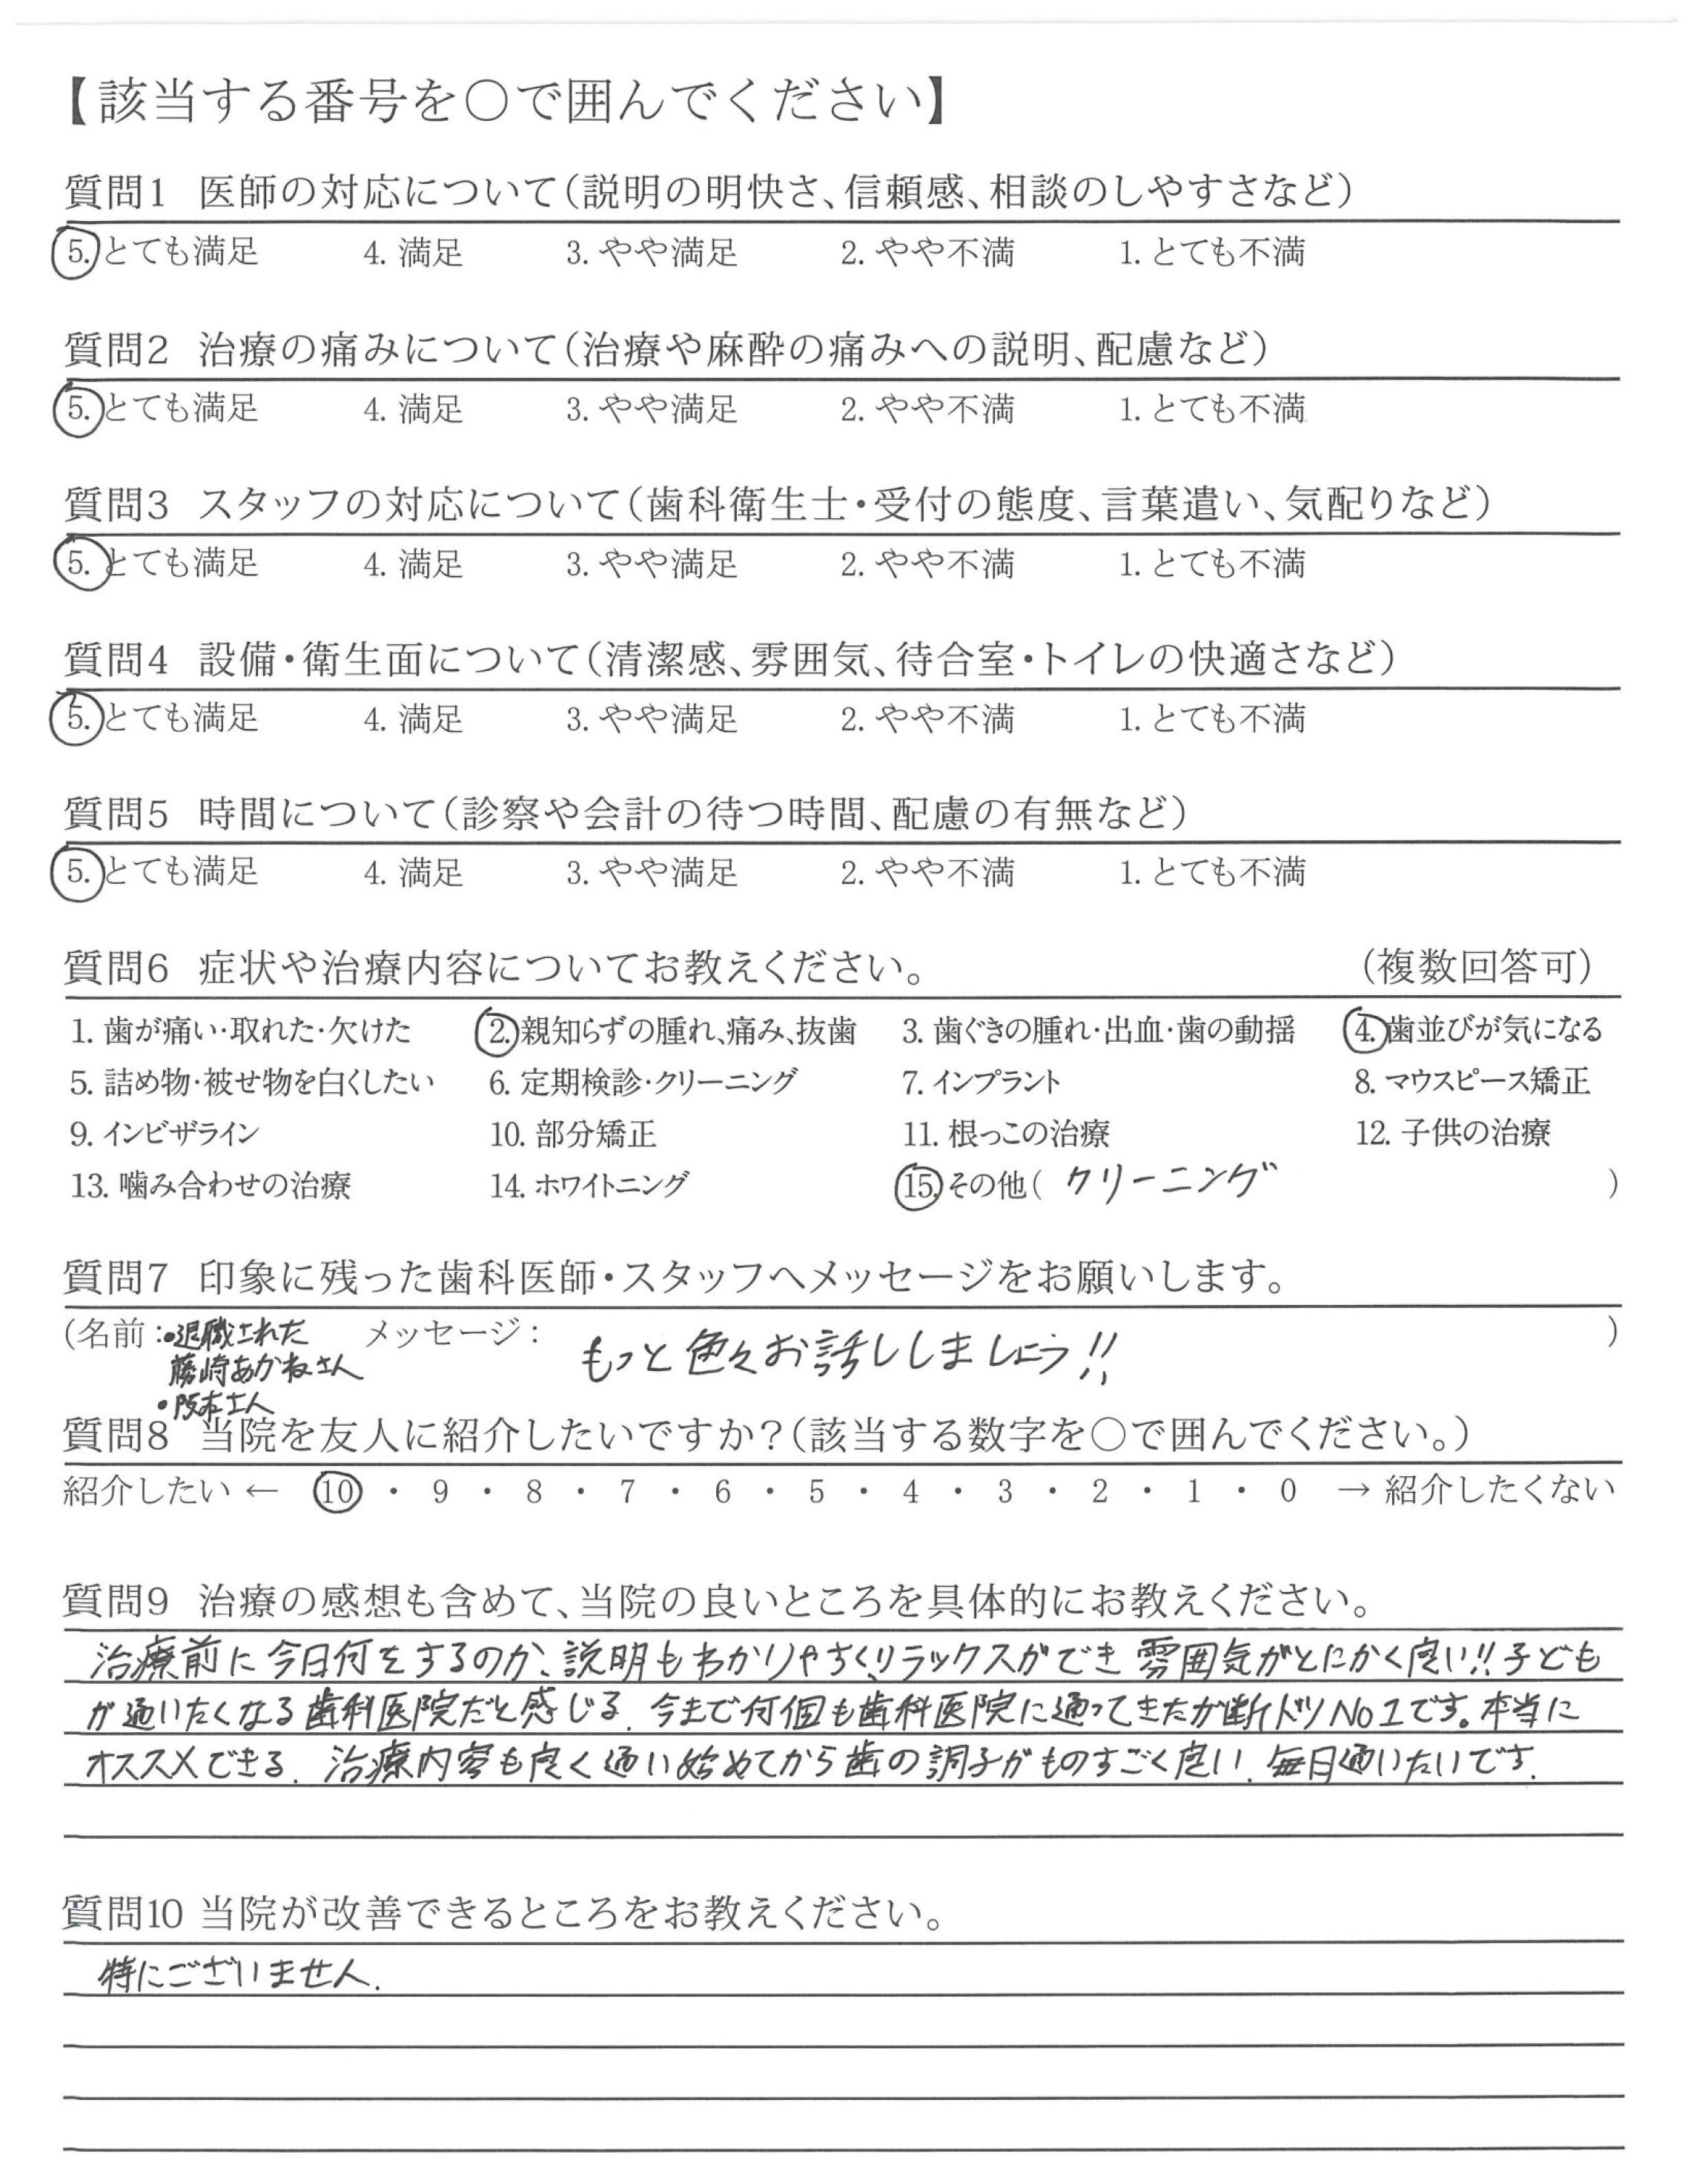 【該当する番号を〇で囲んでください】
質問1 医師の対応について(説明の明快さ、信頼感、相談のしやすさなど)
5. とても満足 4. 満足 3. やや満足 2. やや不満 1. とても不満
質問2 治療の痛みについて(治療や麻酔の痛みへの説明、配慮など)
5. とても満足 4. 満足 3. やや満足 2. やや不満 1. とても不満
質問3 スタッフの対応について(歯科衛生士・受付の態度、言葉遣い、気配りなど)
5. とても満足 4. 満足 3. やや満足 2. やや不満 1. とても不満
質問4 設備・衛生面について(清潔感、雰囲気、待合室・トイレの快適さなど)
5. とても満足 4. 満足 3. やや満足 2. やや不満 1. とても不満
質問5 時間について(診察や会計の待つ時間、配慮の有無など)
5. とても満足 4. 満足 3. やや満足 2. やや不満 1. とても不満
質問6 症状や治療内容についてお教えください。 (複数回答可)
1. 歯が痛い・取れた・欠けた 2. 親知らずの腫れ、痛み、抜歯 3. 歯ぐきの腫れ・出血・歯の動揺 4. 歯並びが気になる
5. 詰め物・被せ物を白くしたい 6. 定期検診・クリーニング 7. インプラント 8. マウスピース矯正
9. インビザライン 10. 部分矯正 11. 根っこの治療 12. 子供の治療
13. 噛み合わせの治療 14. ホワイトニング 15. その他( クリーニング )
質問7 印象に残った歯科医師・スタッフへメッセージをお願いします。
(名前:・退職された メッセージ: もっと色々お話ししましょう!! )
藤崎あかねさん
・阪本さん
質問8 当院を友人に紹介したいですか?(該当する数字を〇で囲んでください。)
紹介したい ← 10 ・ 9 ・ 8 ・ 7 ・ 6 ・ 5 ・ 4 ・ 3 ・ 2 ・ 1 ・ 0 → 紹介したくない
質問9 治療の感想も含めて、当院の良いところを具体的にお教えください。
治療前に今日何をするのか、説明もわかりやすく、リラックスができ雰囲気がとにかく良い!!子ども
が通いたくなる歯科医院だと感じる。今まで何個も歯科医院に通ってきたが断トツNo1です。本当に
オススメできる。治療内容も良く通い始めてから歯の調子がものすごく良い。毎日通いたいです。
質問10 当院が改善できるところをお教えください。
特にございません.